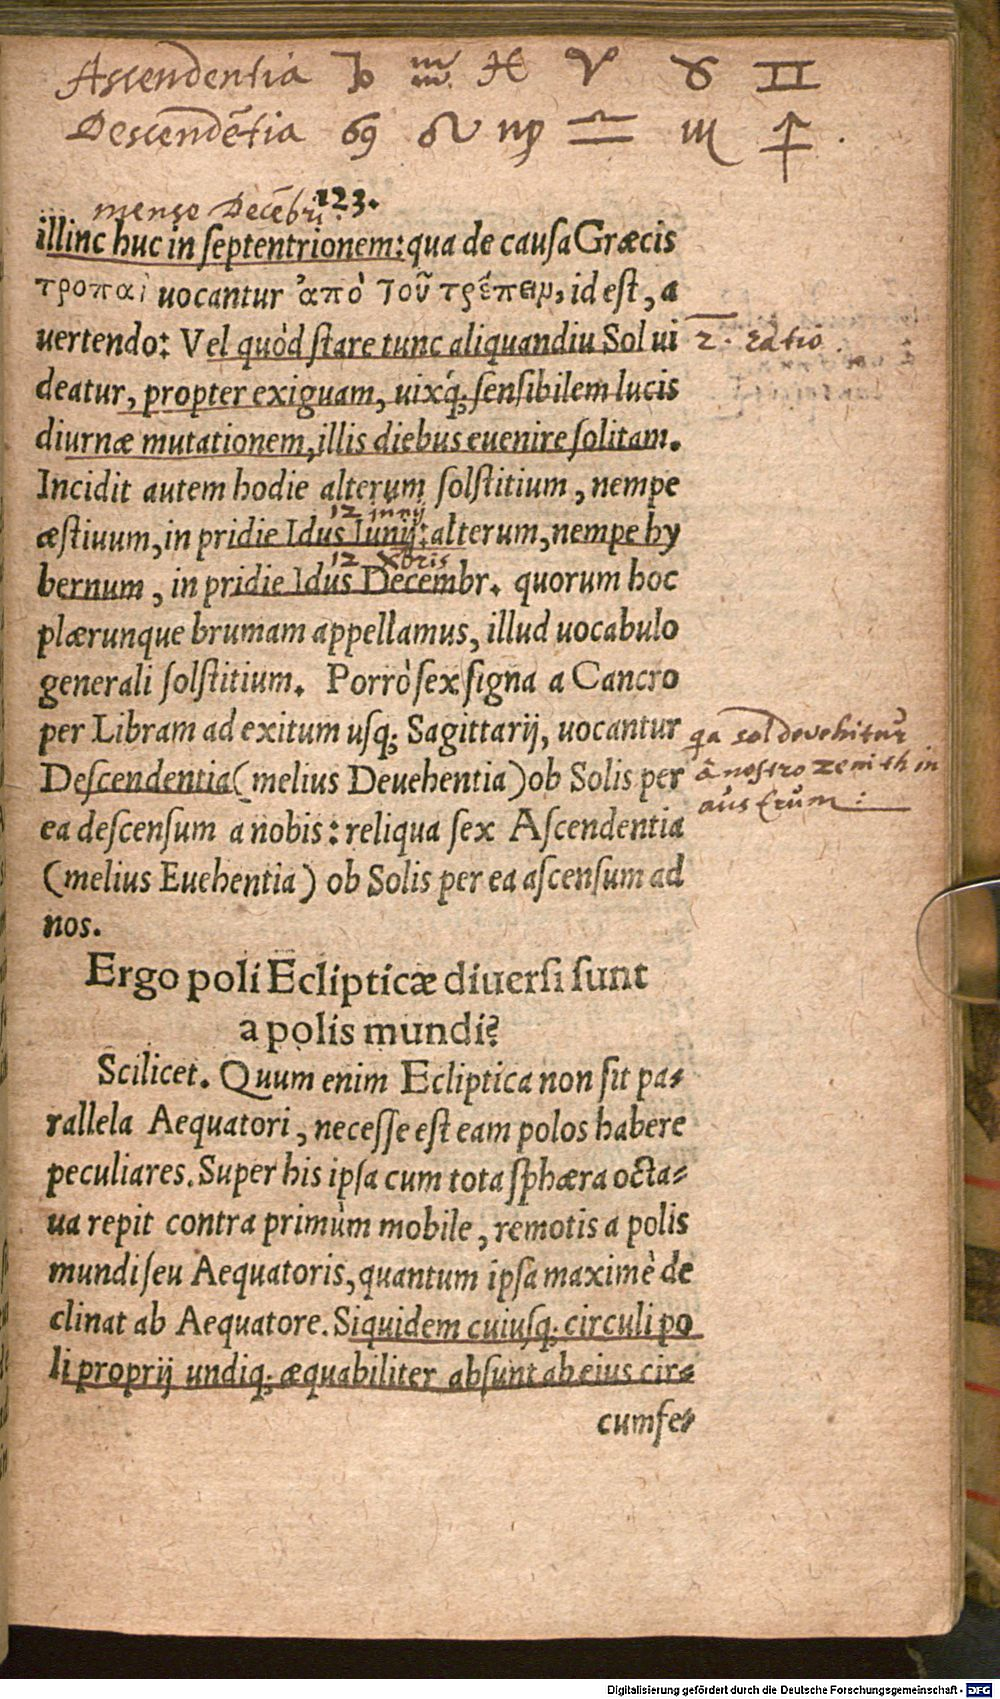 Ascendentia ♑ ♒ ♓ ♈ ♉ ♊
Descendētia ♋ ♌ ♍ ♎ ♏ ♐ .
mense Decēbri
123.
illinc huc in ſeptentrionem: qua de cauſa Græcis
τροπαὶ uocantur ἀπὸ τοῦ τρέπειν, id eſt, a
uertendo: Vel quòd ſtare tunc aliquandiu Sol ui
2. ratio.
deatur, propter exiguam, uixq́; ſenſibilem lucis
diurnæ mutationem, illis diebus euenire ſolitam.
Incidit autem hodie alterum ſolſtitium, nempe
12 junij
æſtiuum, in pridie Idus Iunij: alterum, nempe hy
12 Xbris
bernum, in pridie Idus Decembr. quorum hoc
plærunque brumam appellamus, illud uocabulo
generali ſolſtitium. Porrò ſex ſigna a Cancro
per Libram ad exitum uſq; Sagittarij, uocantur
qa sol devehitur
Deſcendentia (melius Deuehentia) ob Solis per
â nostro zenith in
austrum:
ea deſcenſum a nobis: reliqua ſex Aſcendentia
(melius Euehentia) ob Solis per ea aſcenſum ad
nos.
Ergo poli Eclipticæ diuerſi ſunt
a polis mundi?
Scilicet. Quum enim Ecliptica non ſit pa-
rallela Aequatori, neceſſe eſt eam polos habere
peculiares. Super his ipſa cum tota ſphæra octa-
ua repit contra primùm mobile, remotis a polis
mundi ſeu Aequatoris, quantum ipſa maximè de
clinat ab Aequatore. Siquidem cuiuſq; circuli po
li proprij undiq; æquabiliter abſunt ab eius cir-
cumfe-
Digitalisierung gefördert durch die Deutsche Forschungsgemeinschaft - DFG